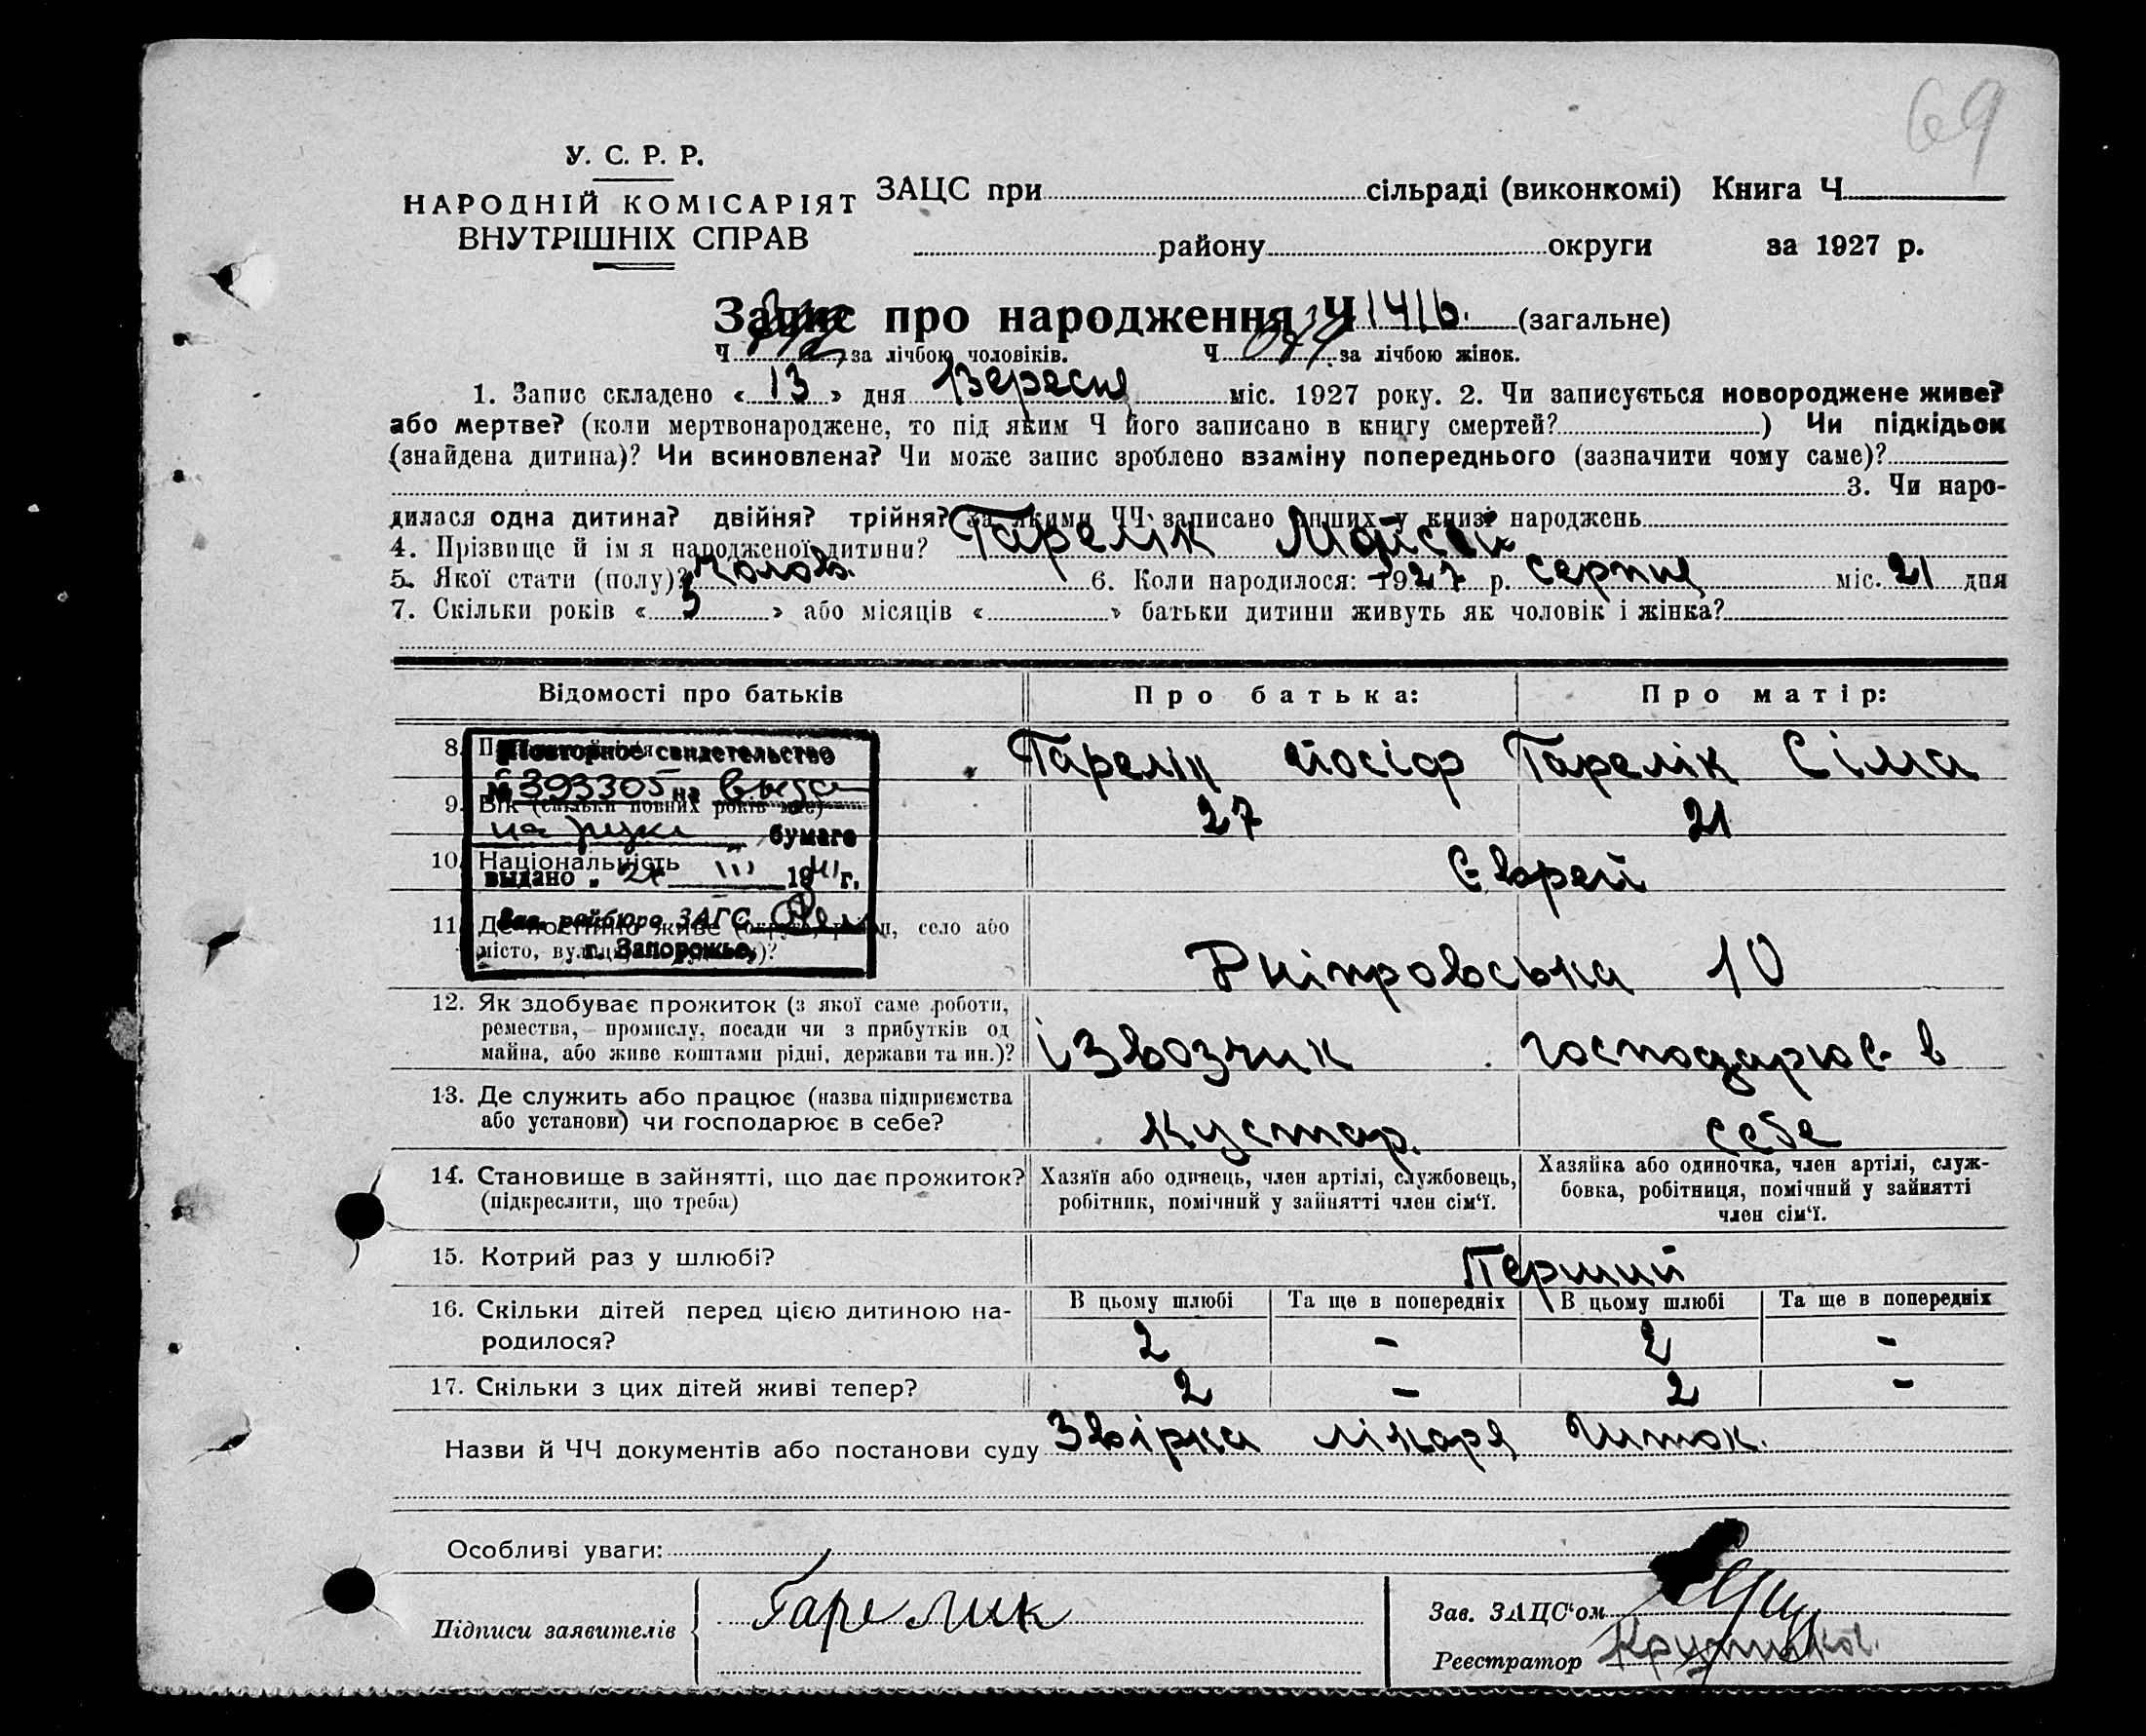 69
У. С. Р. Р.
НАРОДНІЙ КОМІСАРІЯТ
ВНУТРІШНІХ СПРАВ
ЗАЦС при сільраді (виконкомі) Книга Ч
району округи за 1927 р.
Запис про народження Ч 1416. (загальне)
Ч за лічбою чоловіків. Ч за лічбою жінок.
1. Запис складено « 13 » дня Вересня міс. 1927 року. 2. Чи записується новороджене живе?
або мертве? (коли мертвонароджене, то під яким Ч його записано в книгу смертей? ) Чи підкідьок
(знайдена дитина)? Чи всиновлена? Чи може запис зроблено взаміну попереднього (зазначити чому саме)?
3. Чи наро-
дилася одна дитина? двійня? трійня? за якими ЧЧ записано инших у книзі народжень
4. Прізвище й ім'я народженої дитини? Гарелік Мойсей
5. Якої стати (полу)? чолов. 6. Коли народилося: 1927 р. серпня міс. 21 дня
7. Скільки років « 5 » або місяців « » батьки дитини живуть як чоловік і жінка?
Відомості про батьків Про батька: Про матір:
8. Гарелік Йосіф Гарелік Сіма
Повторное свидетельство
№ 393305 на
9. Вік (скільки повних років має) 27 21
на руки бумаге
10. Національність Єврей
выдано " III 1941 г.
Зав. райбюро ЗАГС
11. Де постійно живе (округа, район, село або
місто, вулиця )? Дніпровська 10
г. Запорожье,
12. Як здобуває прожиток (з якої саме роботи,
ремества, промислу, посади чи з прибутків од
майна, або живе коштами рідні, держави та ин.)? ізвозчик господарює в
13. Де служить або працює (назва підприємства
або установи) чи господарює в себе? кустар. себе
14. Становище в зайнятті, що дає прожиток?
(підкреслити, що треба)
Хазяїн або одинець, член артілі, службовець,
робітник, помічний у зайнятті член сім'ї.
Хазяйка або одиночка, член артілі, служ-
бовка, робітниця, помічний у зайнятті
член сім'ї.
15. Котрий раз у шлюбі? Перший
16. Скільки дітей перед цією дитиною на-
родилося?
В цьому шлюбі Та ще в попередніх В цьому шлюбі Та ще в попередніх
2 - 2 -
17. Скільки з цих дітей живі тепер? 2 - 2 -
Назви й ЧЧ документів або постанови суду Звірка лікаря
Особливі уваги:
Підписи заявителів Гарелик
Зав. ЗАЦС'ом
Реєстратор